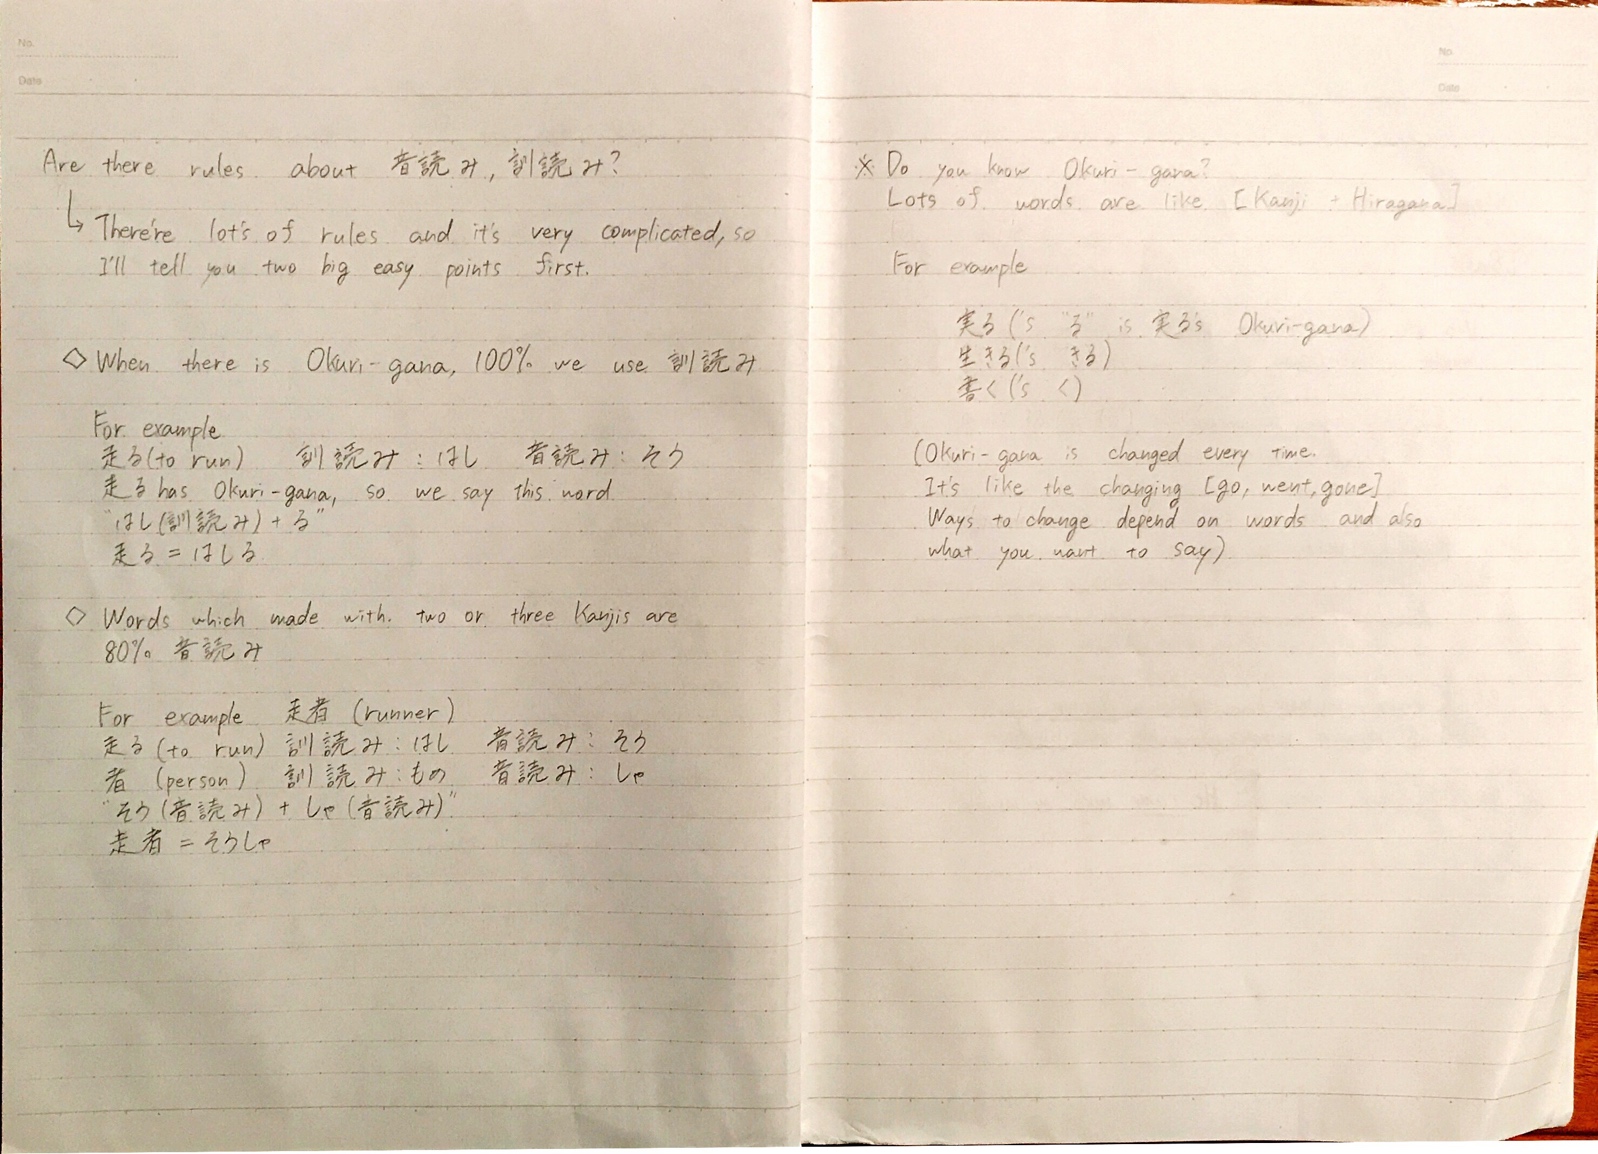 No.
Date
Are there rules about 音読み, 訓読み?
There're lot's of rules and it's very complicated, so
I'll tell you two big easy points first.
◇ When there is Okuri-gana, 100% we use 訓読み
For example
走る(to run) 訓読み:はし 音読み:そう
走る has Okuri-gana, so we say this word
"はし(訓読み)+る"
走る=はしる
◇ Words which made with two or three Kanjis are
80% 音読み
For example 走者 (runner)
走る(to run) 訓読み:はし 音読み:そう
者 (person) 訓読み:もの 音読み:しゃ
"そう(音読み)+しゃ(音読み)"
走者=そうしゃ
No.
Date
※ Do you know Okuri-gana?
Lots of words are like [Kanji + Hiragana]
For example
実る('s "る" is 実る's Okuri-gana)
生きる('s きる)
書く('s く)
(Okuri-gana is changed every time.
It's like the changing [go, went, gone]
Ways to change depend on words and also
what you want to say)